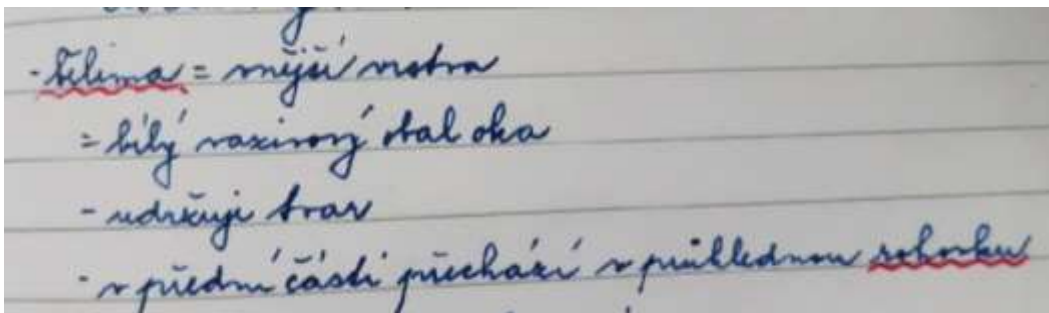 - bělima = vnější vrstva
= bílý vazivový obal oka
- udržuje tvar
- v přední části přechází v průhlednou rohovku